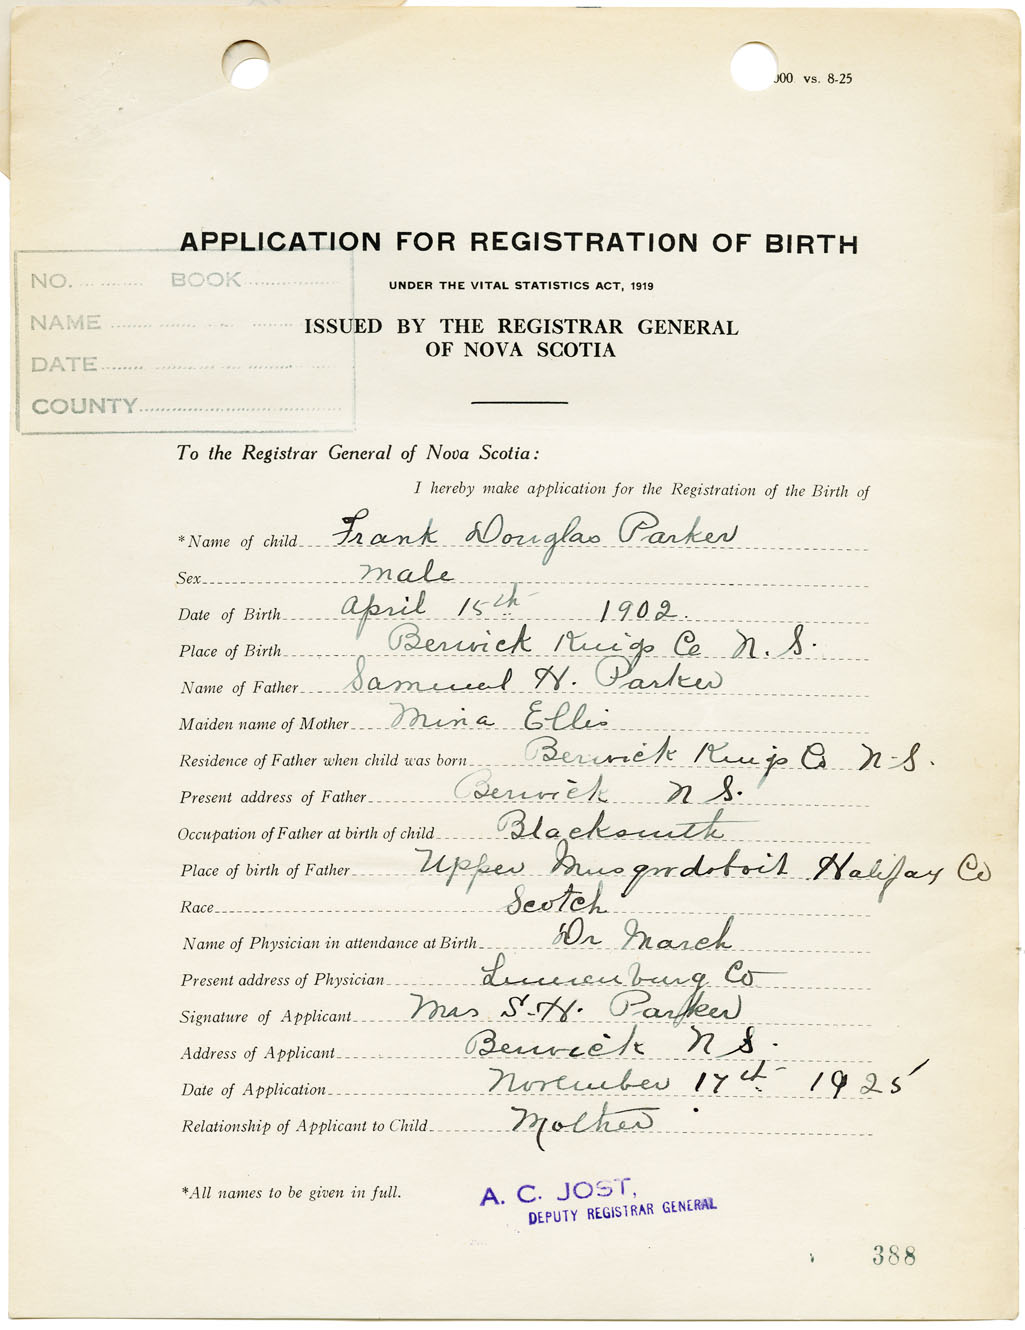 000. vs. 8-25
APPLICATION FOR REGISTRATION OF BIRTH
UNDER THE VITAL STATISTICS ACT, 1919
ISSUED BY THE REGISTRAR GENERAL
OF NOVA SCOTIA
NO. BOOK
NAME
DATE
COUNTY
To the Registrar General of Nova Scotia:
I hereby make application for the Registration of the Birth of
*Name of child Frank Douglas Parker
Sex male
Date of Birth April 15th 1902.
Place of Birth Berwick Kings Co N. S.
Name of Father Sammuel H. Parker
Maiden name of Mother Mina Ellis
Residence of Father when child was born Berwick Kings Co N-S.
Present address of Father Berwick N S.
Occupation of Father at birth of child Blacksmith
Place of birth of Father Upper Musqodoboit Halifax Co
Race Scotch
Name of Physician in attendance at Birth Dr March
Present address of Physician Lunenburg Co
Signature of Applicant Mrs S-H. Parker
Address of Applicant Berwick N S.
Date of Application November 17th 1925
Relationship of Applicant to Child Mother
*All names to be given in full.
A. C. JOST,
DEPUTY REGISTRAR GENERAL
388